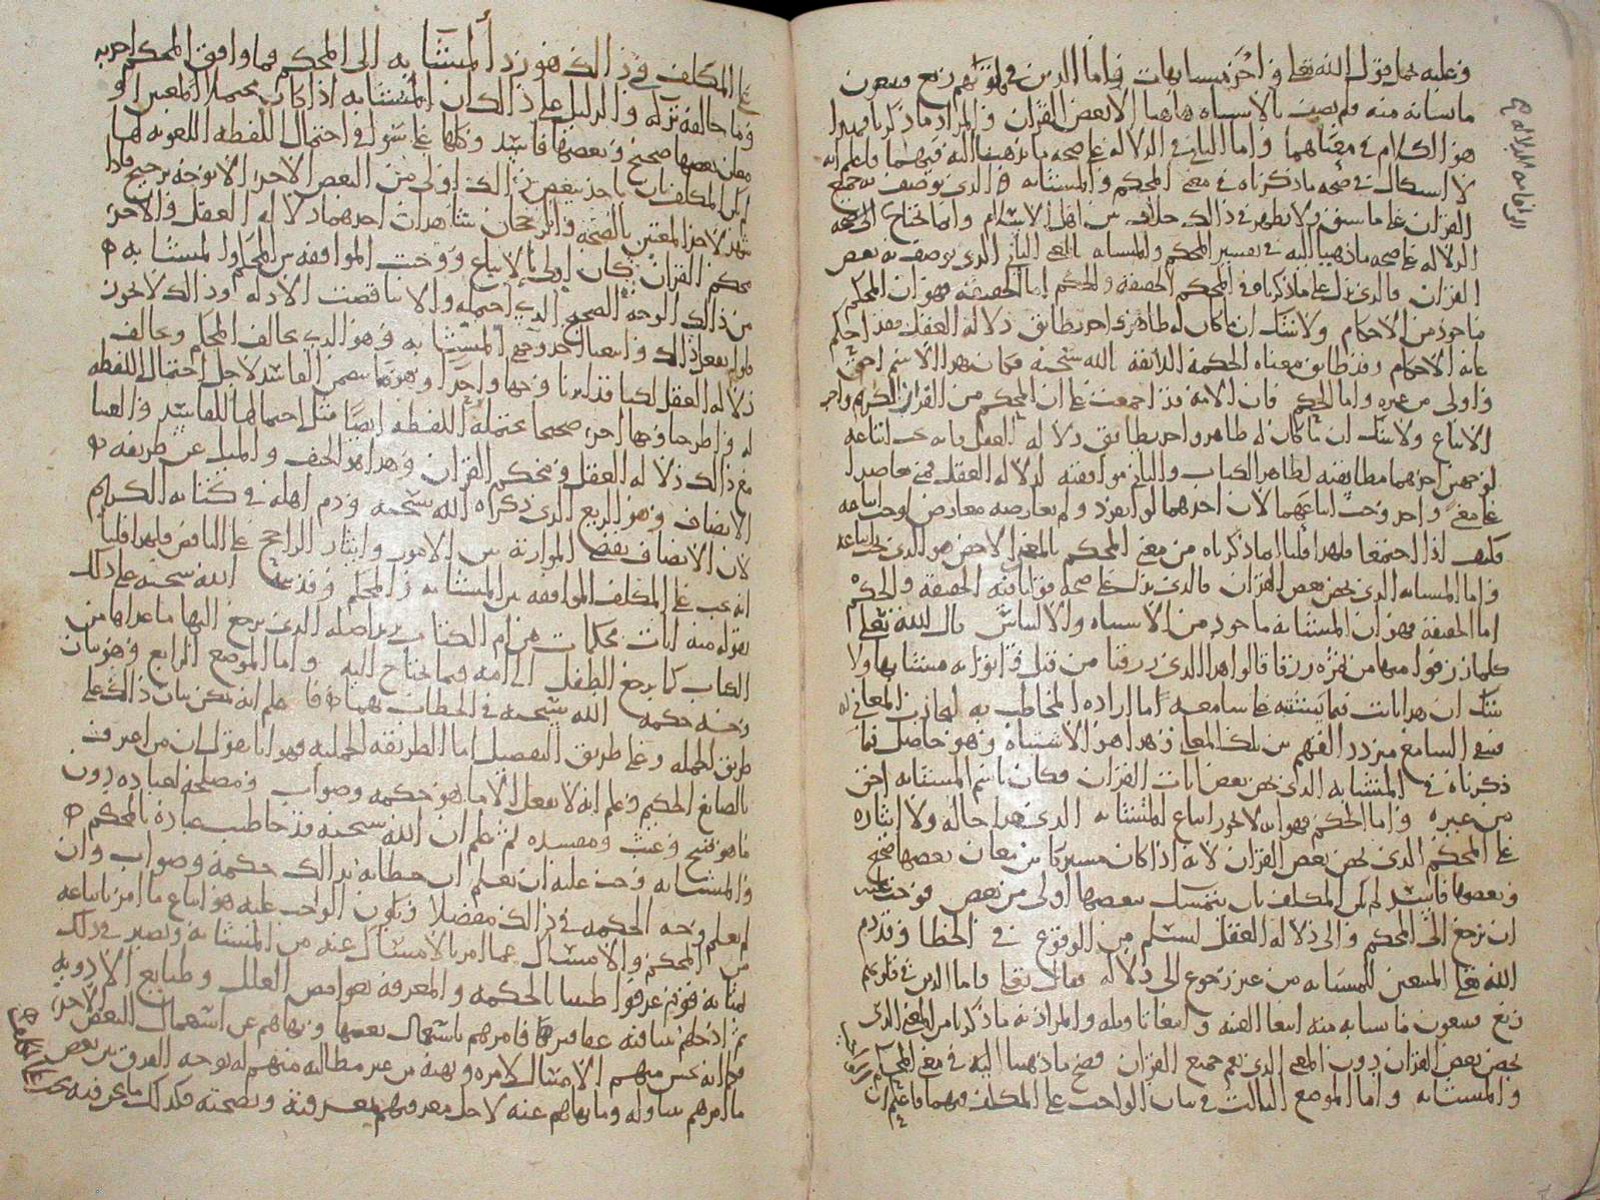 وعليه يحمل قول الله تعالى وأخر متشابهات فأما الذين في قلوبهم زيغ فيتبعون
ما تشابه منه فلم يصف بالاشتباه هاهنا الا بعض القران والمراد ما ذكرنا فهذا
هو الكلام في معناهما واما الثاني في الدلالة على صحة ما ذهبنا اليه فيهما فاعلم انه
لا اشكال في صحة ما ذكرناه في معنى المحكم والمتشابه الذي يوصف به جميع
القران على ما سبق ولا يظهر في ذلك خلاف بين اهل الاسلام وانما نحتاج الى صحة
الدلالة على صحة ما ذهبنا اليه في تفسير المحكم والمتشابه بالمعنى الثاني الذي يوصف به بعض
القران والذي يدل على ما ذكرناه في المحكم الحقيقة والحكم اما الحقيقة فهو ان المحكم
ماخوذ من الاحكام ولا شك ان ما كان له ظاهر واحد يطابق دلالة العقل فقد احكم
غاية الاحكام وقد طابق معناه الحكمة اللائقة بالله سبحنه فكان بهذا الاسم احق
واولى من غيره واما الحكم فان الامة قد اجمعت على ان المحكم من القران الكريم واجب
الاتباع ولا شك ان ما كان له ظاهر واحد يطابق دلالة العقل فانه يجب اتباعه
لوجهين احدهما مطابقته لظاهر الكتاب والثاني موافقته لدلالة العقل فمتى تعاضدا
على معنى واحد وجب اتباعهما لان احدهما لو انفرد ولم يعارضه معارض لوجب اتباعه
فكيف اذا اجتمعا فلهذا قلنا ان ما ذكرناه من معنى المحكم بالمعنى الاخص هو الذي يجب اتباعه
واما المتشابه الذي يخص بعض القران فالذي يدل على صحة قولنا فيه الحقيقة والحكم
اما الحقيقة فهو ان المتشابه ماخوذ من الاشتباه والالتباس قال الله تعالى
كلما رزقوا منها من ثمرة رزقا قالوا هذا الذي رزقنا من قبل واتوا به متشابها ولا
شك ان هذه ايات مما يشتبه على سامعه ما اراده المخاطب به لتجاذب المعاني له
فيبقى السامع متردد الفهم بين تلك المعاني وهذا هو الاشتباه وهو حاصل فيما
ذكرناه في المتشابه الذي يخص بعض ايات القران فكان باسم المتشابه احق
من غيره واما الحكم فهو انه لا يجوز اتباع المتشابه الذي هذا حاله ولا ايثاره
على المحكم الذي يخص بعض القران لانه اذا كان مشتركا بين معان بعضها صحيح
وبعضها فاسد لم يكن المكلف بان يتمسك ببعضها اولى من بعض فوجب عليه
ان يرجع الى المحكم والى دلالة العقل ليسلم من الوقوع في الخطا وقد ذم
الله تعالى المتبعين للمتشابه من غير رجوع الى دلالة فقال تعالى فاما الذين في قلوبهم
زيغ فيتبعون ما تشابه منه ابتغاء الفتنة وابتغاء تاويله والمراد به ما ذكرنا من المعنى الذي
يخص بعض القران دون المعنى الذي يعم جميع القران فصح ما ذهبنا اليه في معنى المحكم
والمتشابه واما الموضع الثالث في بيان الواجب على المكلف فيهما فاعلم ان
على المكلف في ذلك هو رد المتشابه الى المحكم فما وافق المحكم اخذ به
وما خالفه تركه والدليل على ذلك ان المتشابه اذا كان محتملا لمعنيين او
معان بعضها صحيح وبعضها فاسد وكلها على سواء في احتمال اللفظة اللغوية لها
لم يكن المكلف بان ياخذ ببعض ذلك اولى من البعض الاخر الا لوجه ترجيح فاذا
شهد لاحد المعنيين بالصحة والرجحان شاهدان احدهما دلالة العقل والاخر
محكم القران كان اولى بالاتباع ووجب الموافقة بين المحكم والمتشابه
من ذلك الوجه الصحيح الذي احتمله والا تناقضت الادلة وذلك لا يجوز
فلو لم نفعل ذلك واتبعنا احد وجهي المتشابه وهو الذي يخالف المحكم ويخالف
دلالة العقل لكنا قد اثرنا وجها واحدا وهو فاسد لاجل احتمال اللفظة
له واطرحنا وجها اخر صحيحا تحتمله اللفظة ايضا مثل احتمالها للفاسد والغينا
مع ذلك دلالة العقل ومحكم القران وهذا هو الحيف والميل عن طريقة
الانصاف وهو الزيغ الذي ذكره الله سبحنه وذم اهله في كتابه الكريم
لان الانصاف يقتضي الموازنة بين الامور وايثار الراجح على الناقص فلهذا قلنا
انه يجب على المكلف الموافقة بين المتشابه والمحكم وقد نبه الله سبحنه على ذلك
بقوله منه ايات محكمات هن ام الكتاب يريد اصله الذي يرجع اليها ما عداها من
الكتاب كما يرجع الطفل الى امه فيما يحتاج اليه واما الموضع الرابع وهو بيان
وجه حكمة الله سبحنه في الخطاب بهما فاعلم انه يمكن بيان ذلك على
طريق الجملة وعلى طريق التفصيل اما الطريقة الجملية فهو انا نقول ان من اعترف
بالصانع الحكيم وعلم انه لا يفعل الا ما هو حكمة وصواب ومصلحة لعباده دون
ما هو قبيح وعبث ومفسدة ثم علم ان الله سبحنه قد خاطب عباده بالمحكم
والمتشابه وجب عليه ان يعلم ان خطابه بذلك حكمة وصواب وان
لم يعلم وجه الحكمة في ذلك مفصلا ويكون الواجب عليه هو اتباع ما امر باتباعه
من المحكم والامساك عما امر بالامساك عنه من المتشابه ويصير في ذلك
بمثابة قوم عرفوا طبيبا بالحكمة والمعرفة بغوامض العلل وطبايع الادوية
ثم ادخلهم بيتا فيه عقاقير فامرهم باستعمال بعضها ونهاهم عن استعمال البعض الاخر
فكما انه يحسن منهم الامتثال لامره ونهيه من غير مطالبة منهم له بوجه الفرق بين بعض
ما امرهم بتناوله وما نهاهم عنه لاجل معرفتهم بمعرفته ونصحته فكذلك ما نحن فيه يجب